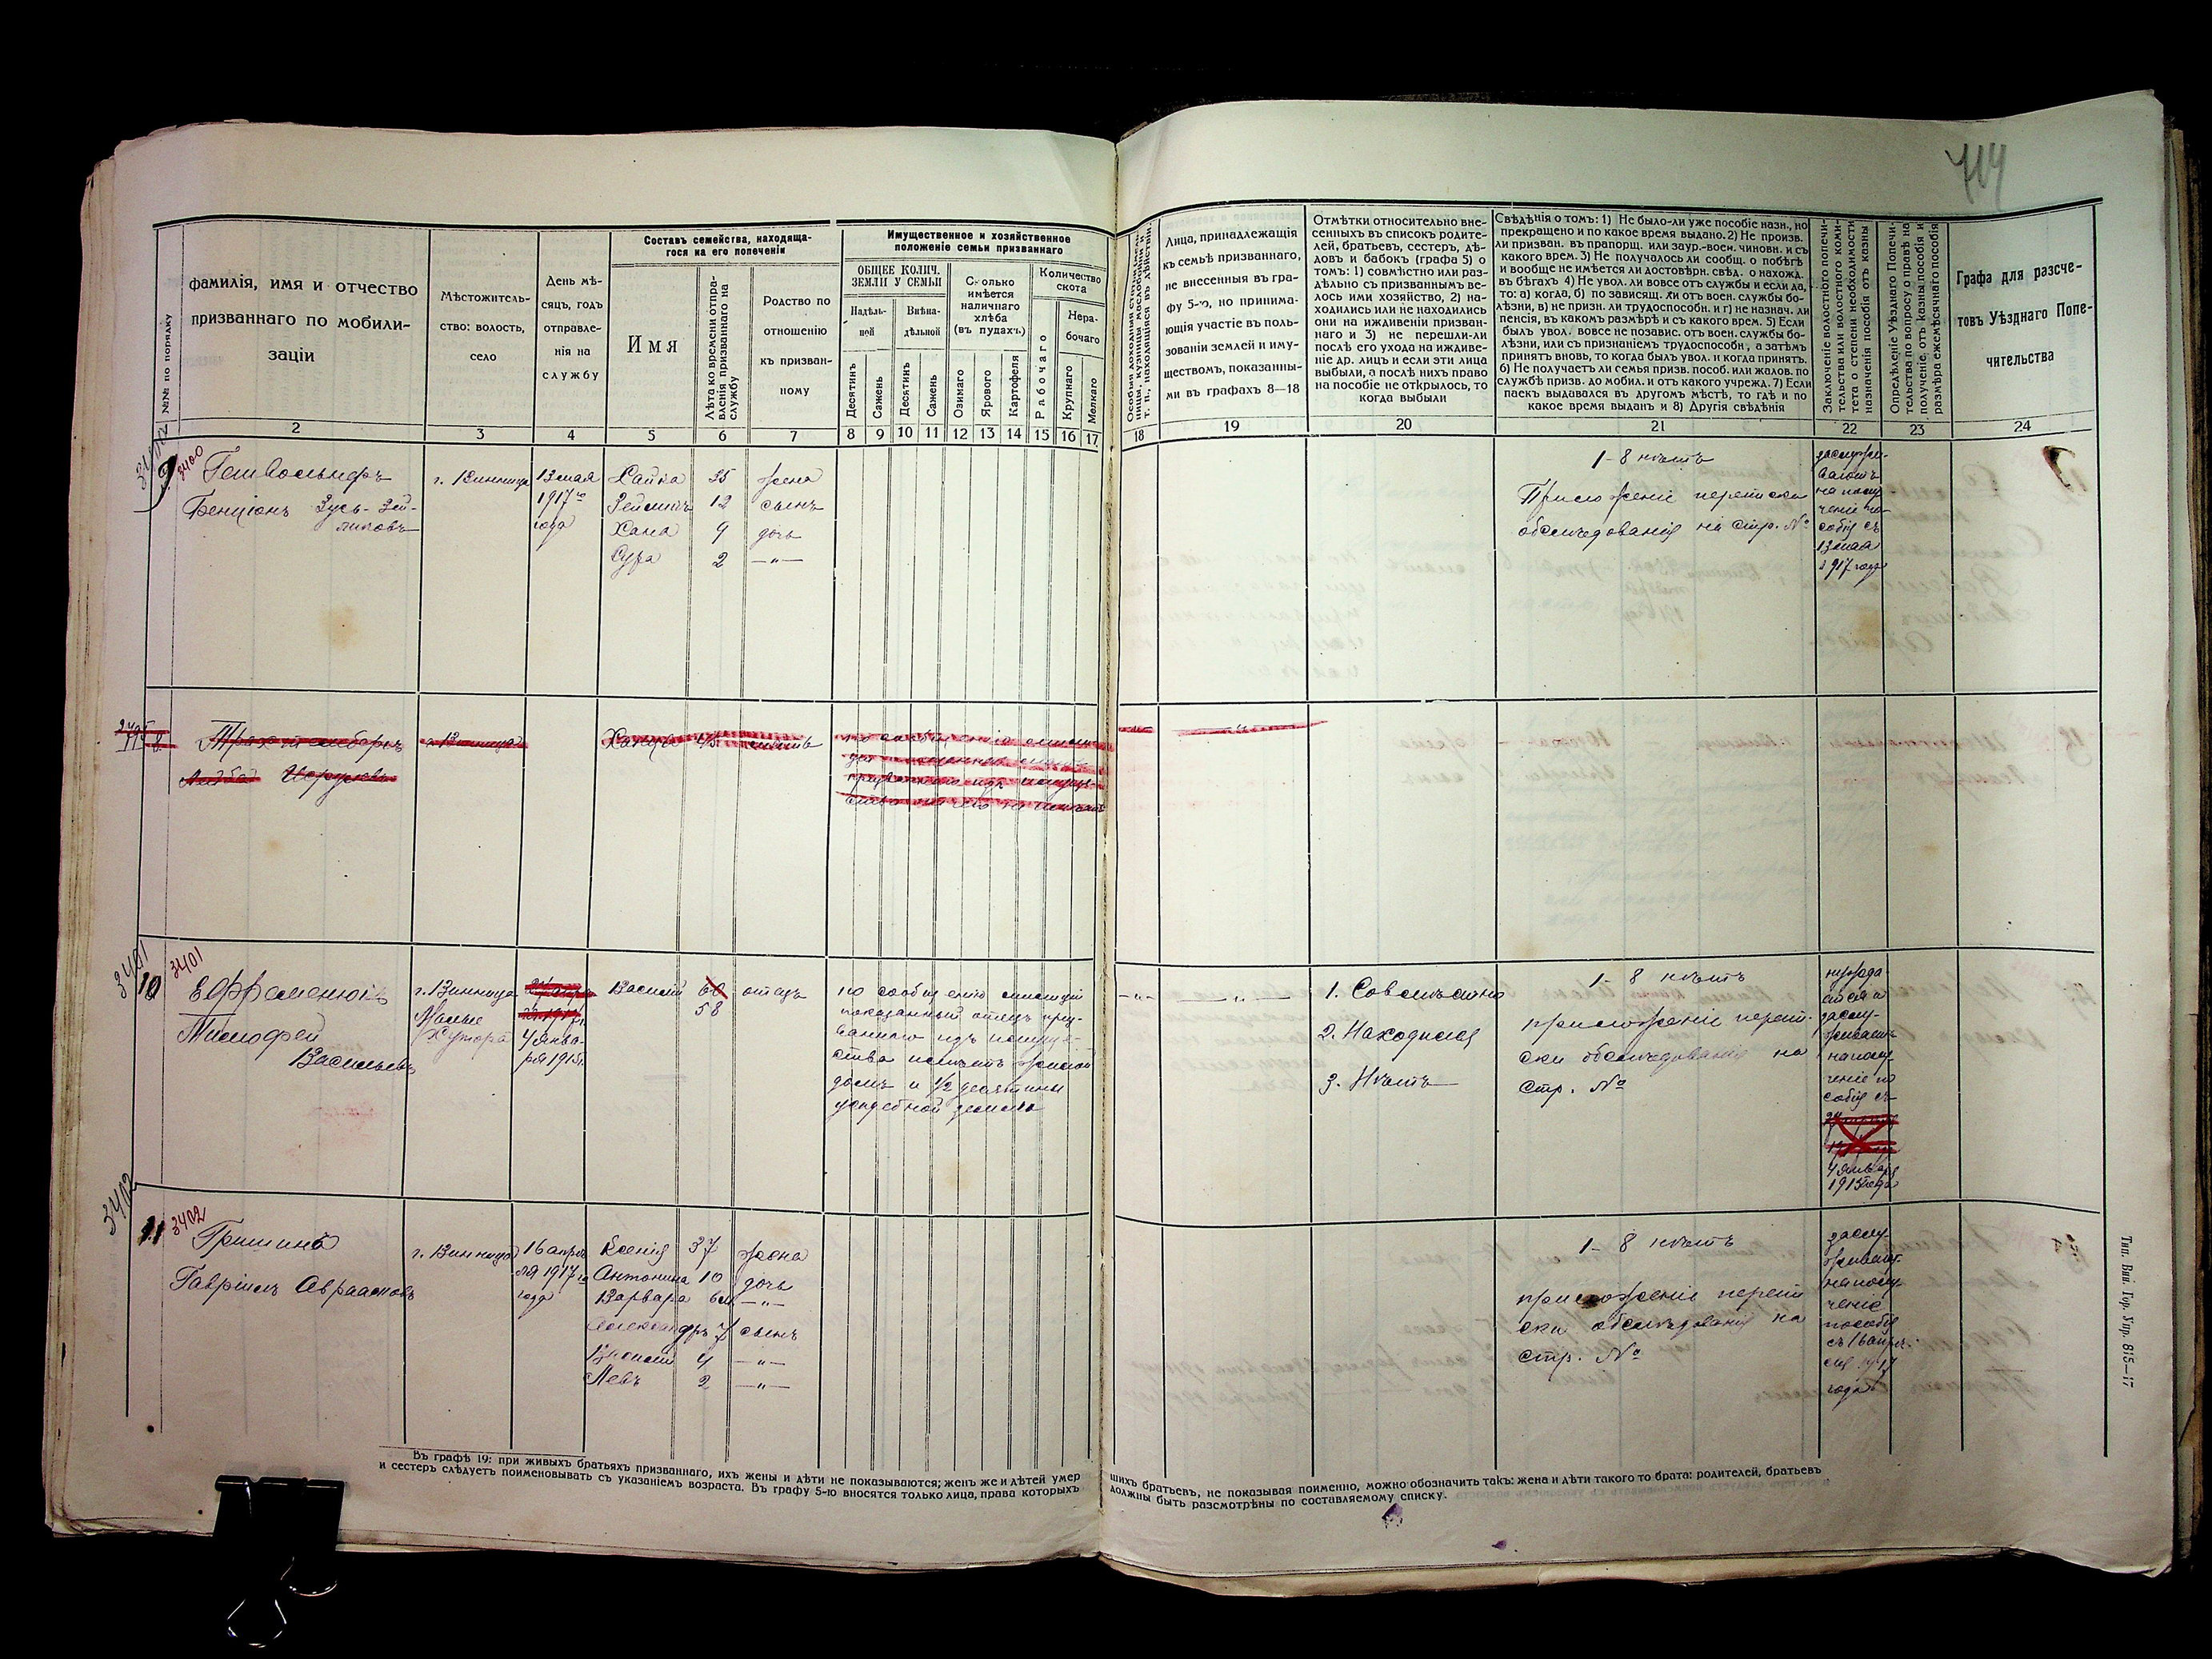 714
№№ по порядку
фамилія, имя и отчество
призваннаго по мобили-
заціи
Мѣстожитель-
ство: волость,
село
День мѣ-
сяцъ, годъ
отправле-
нія на
службу
Составъ семейства, находяща-
гося на его попеченіи
Имя
Лѣта ко времени отпра-
вленія призваннаго на
службу
Родство по
отношенію
къ призван-
ному
Имущественное и хозяйственное
положеніе семьи призваннаго
ОБЩЕЕ КОЛИЧ.
ЗЕМЛИ У СЕМЬИ
Надѣль-
ной
Внѣна-
дѣльной
Десятинъ
Сажень
Десятинъ
Сажень
Сколько
имѣется
наличнаго
хлѣба
(въ пудахъ)
Озимаго
Ярового
Картофеля
Количество
скота
Рабочаго
Нера-
бочаго
Крупнаго
Мелкаго
Лица, принадлежащія
къ семьѣ призваннаго,
не внесенныя въ гра-
фу 5-ю, но принима-
ющія участіе въ поль-
зованіи землей и иму-
ществомъ, показанны-
ми въ графахъ 8—18
Отмѣтки относительно вне-
сенныхъ въ списокъ родите-
лей, братьевъ, сестеръ, дѣ-
довъ и бабокъ (графа 5) о
томъ: 1) совмѣстно или раз-
дѣльно съ призваннымъ ве-
лось ими хозяйство, 2) на-
ходились или не находились
они на иждивеніи призван-
наго и 3) не перешли-ли
послѣ его ухода на иждиве-
ніе др. лицъ и если эти лица
выбыли, а послѣ нихъ право
на пособіе не открылось, то
когда выбыли
Свѣдѣнія о томъ: 1) Не было-ли уже пособіе назн., но
прекращено и по какое время выдано. 2) Не произв.
ли призван. въ прапорщ. или заур.-воен. чиновн. и съ
какого врем. 3) Не получалось ли сообщ. о побѣгѣ
и вообще не имѣется ли достовѣрн. свѣд. о нахожд.
въ бѣгахъ 4) Не увол. ли вовсе отъ службы и если да,
то: а) когда, б) по зависящ. ли отъ воен. службы бо-
лѣзни, в) не призн. ли трудоспособн. и г) не назнач. ли
пенсія, въ какомъ размѣрѣ и съ какого врем. 5) Если
былъ увол. вовсе не позавис. отъ воен. службы бо-
лѣзни, или съ признаніемъ трудоспособн., а затѣмъ
принятъ вновь, то когда былъ увол. и когда принятъ.
6) Не получаетъ ли семья призв. пособ. или жалов. по
службѣ призв. до мобил. и отъ какого учрежд. 7) Если
паекъ выдавался въ другомъ мѣстѣ, то гдѣ и по
какое время выданъ и 8) Другія свѣдѣнія
Заключеніе волостного попечи-
тельства или волостного коми-
тета о степени необходимости
назначенія пособія отъ казны
Опредѣленіе Уѣзднаго Попечи-
тельства по вопросу о правѣ на
полученіе отъ казны пособія и
размѣра ежемѣсячнаго пособія
Графа для разсче-
товъ Уѣзднаго Попе-
чительства
2 3 4 5 6 7 8 9 10 11 12 13 14 15 16 17 18 19 20 21 22 23 24
9 3400
Бенціонъ Зусь-Зей-
ликовъ
г. Винница
13 мая
1917 го
года
Хайка 35 жена
Зейликъ 12 сынъ
Хана 9 дочь
Сура 2 —"—
1-8 нѣтъ
Приложеніе переписки
обслѣдованія на стр. №
заслужи-
ваютъ
на полу
ченіе по
собія съ
13 мая
1917 года
8.
г. Винница
45
10 3401
Ефременюкъ
Тимофей
Васильевъ
г. Винница
Малые
Хутора
4 Янва-
ря 1915 г.
Василій 60 отецъ
58
по сообщенію милиціи
показанный отецъ при-
званнаго изъ имуще-
ства имѣетъ жилой
домъ и 1/2 десятины
усадебной земли
—"— —"—
1. Совмѣстно
2. Находился
3. Нѣтъ
1-8 нѣтъ
приложеніе перепи-
ски обслѣдованія на
стр. №
нужда
ется и
заслу-
живаетъ
на полу
ченіе по
собія съ
4 Января
1915 года
11 3402
Гришинъ
Гавріилъ Авраамовъ
г. Винница
16 апрѣ
ля 1917 го
года
Ксенія 37 жена
Антонина 10 дочь
Варвара 6 м. —"—
Александръ 7 сынъ
Василій 4 —"—
Левъ 2 —"—
1-8 нѣтъ
приложеніе перепи
ски обслѣдованія на
стр. №
заслу-
живаютъ
на полу
ченіе
пособія
съ 16 апрѣ-
ля 1917
года
3401
3402
Въ графѣ 19: при живыхъ братьяхъ призваннаго, ихъ жены и дѣти не показываются; женъ же и дѣтей умер
шихъ братьевъ, не показывая поименно, можно обозначить такъ: жена и дѣти такого то брата: родителей, братьевъ
и сестеръ слѣдуетъ поименовывать съ указаніемъ возраста. Въ графу 5-ю вносятся только лица, права которыхъ
должны быть разсмотрѣны по составляемому списку.
Тип. Вин. Гор. Упр. 815—17